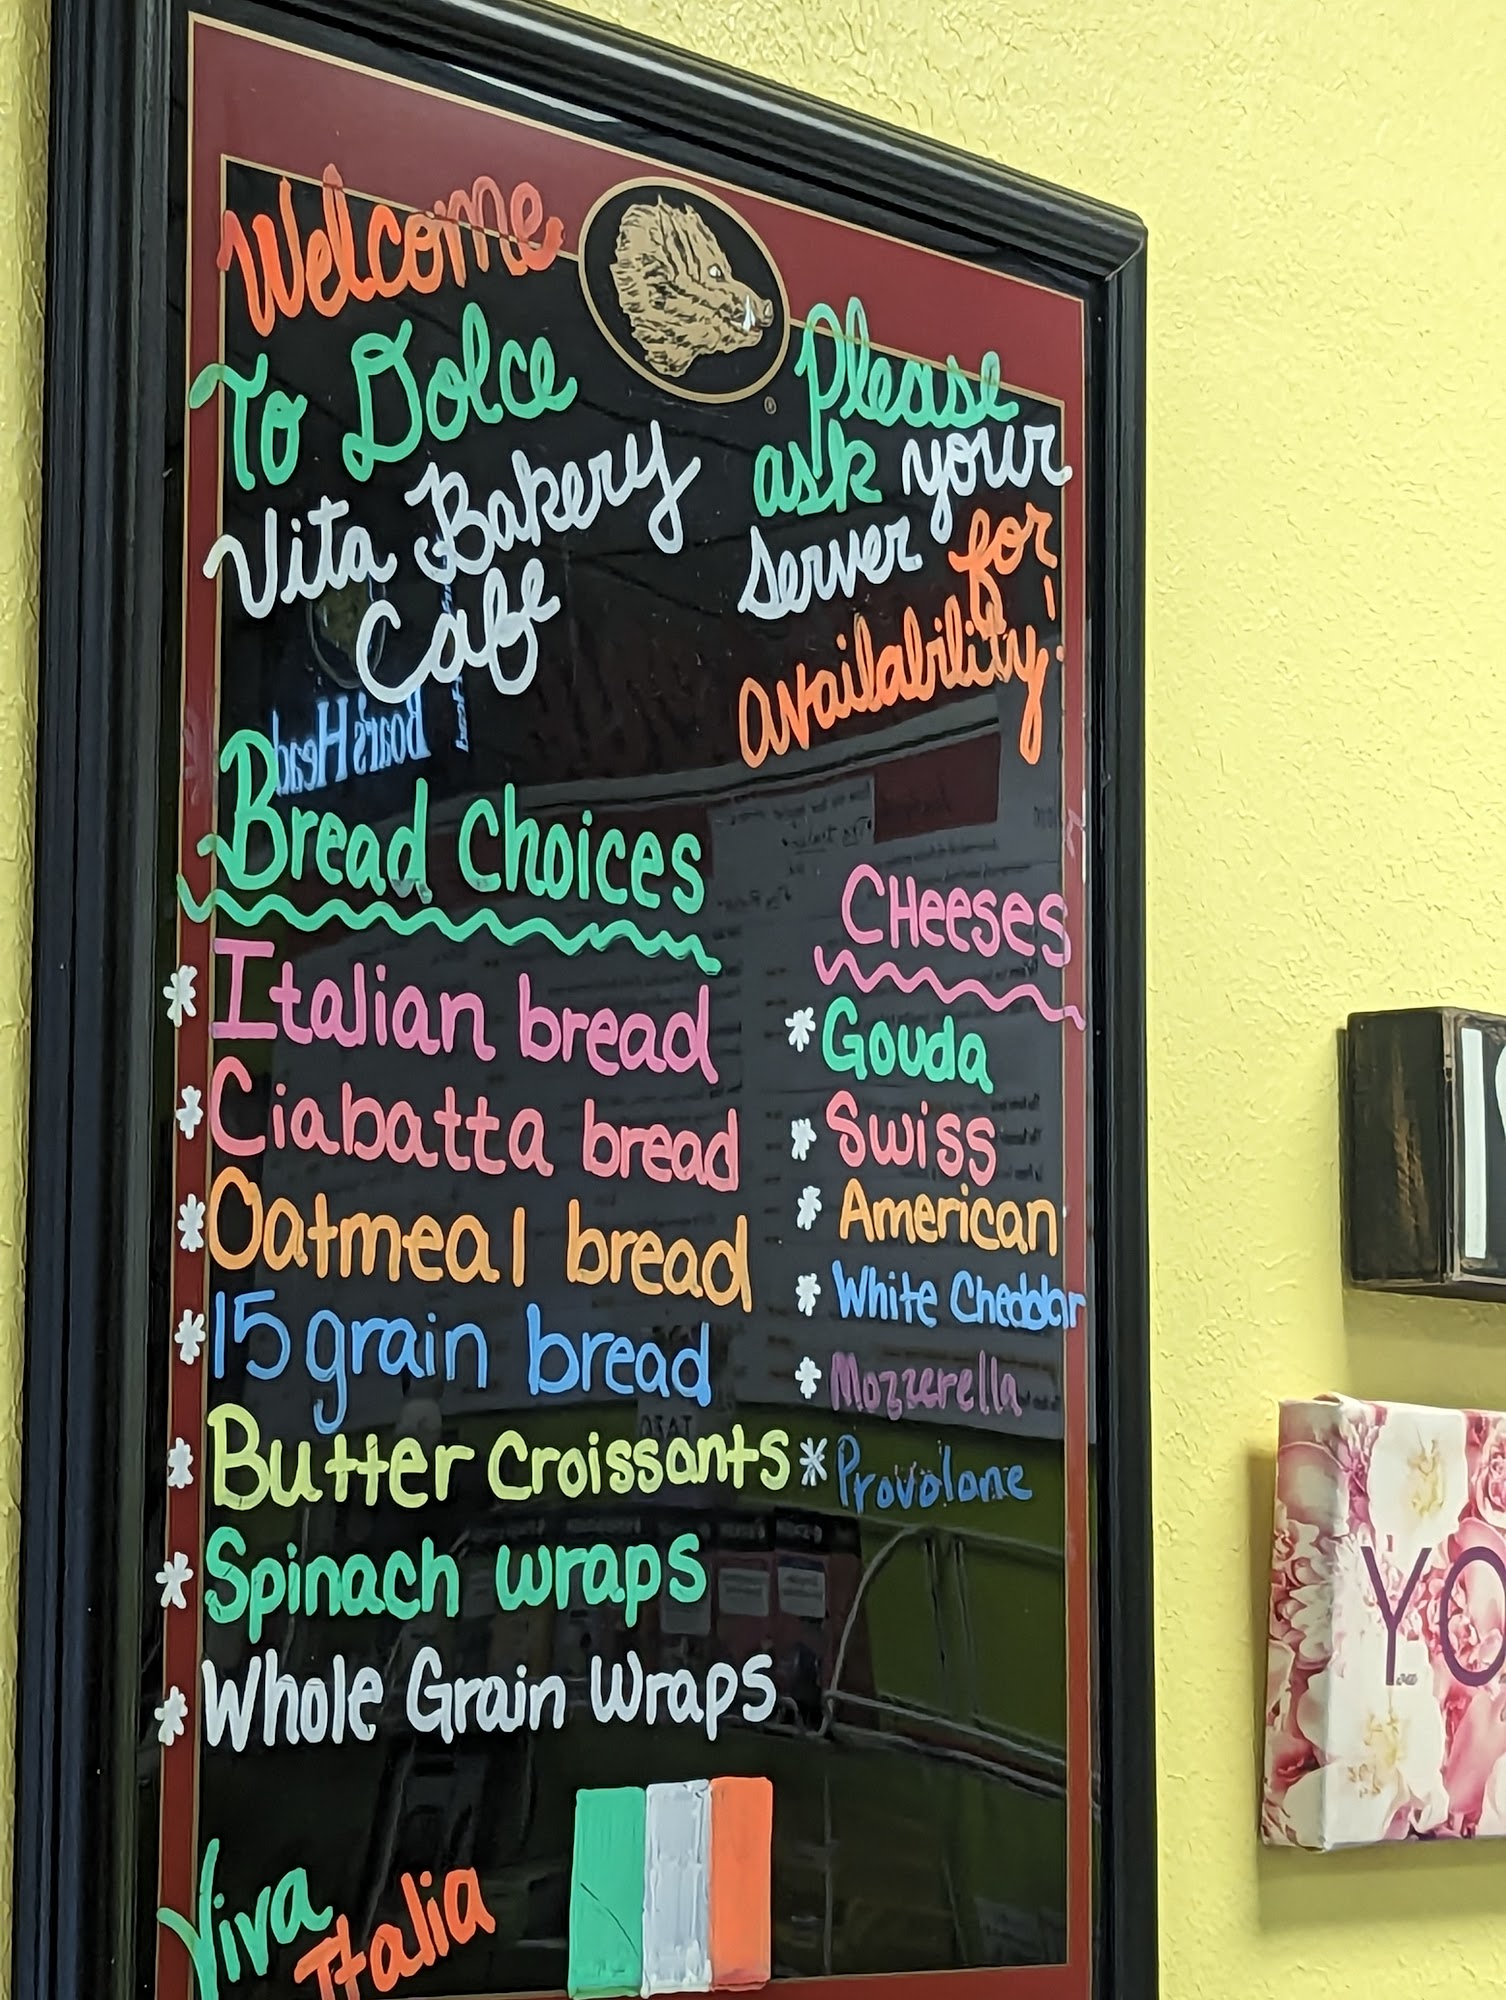 Welcome
To Dolce
Vita Bakery
Cafe
Please
ask your
server for
availability!
Boar's Head
Bread Choices
* Italian bread
* Ciabatta bread
* Oatmeal bread
* 15 grain bread
* Butter Croissants
* Spinach wraps
* Whole Grain Wraps
CHeeses
* Gouda
* Swiss
* American
* White Cheddar
* Mozzerella
* Provolone
Viva
Italia
YO